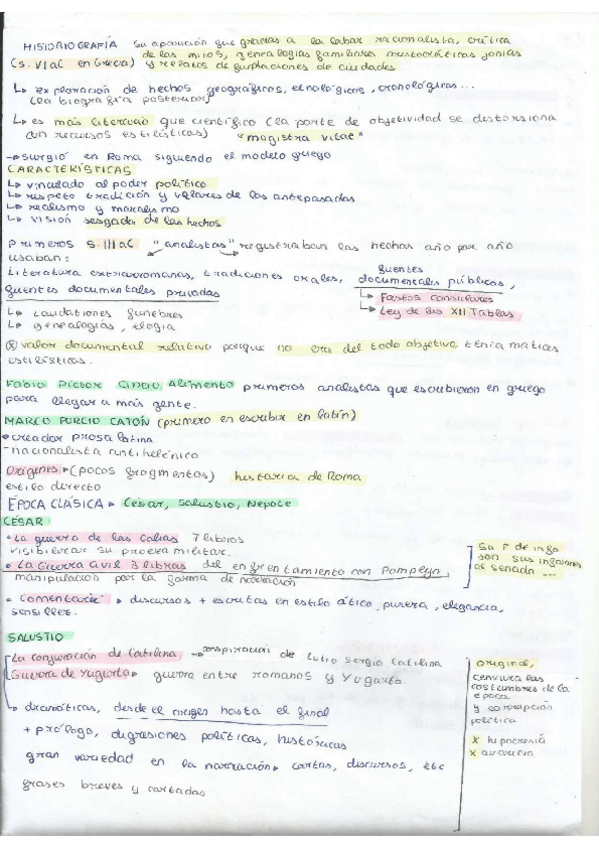 HISTORIOGRAFÍA su aparición que gracias a la labor racionalista, crítica
de los mitos, genealogías familiares aristocráticas jonias
(s. VI aC en Grecia) y relatos de fundaciones de ciudades
↳ exploración de hechos geográficos, etnológicos, cronológicos...
(la biografía posterior)
↳ es más literario que científico (la parte de objetividad se distorsiona
con recursos estilísticos) "magistra vitae"
→ surgió en Roma siguiendo el modelo griego
CARACTERÍSTICAS
↳ vinculado al poder político
↳ respeto tradición y valores de los antepasados
↳ realismo y moralismo
↳ visión sesgada de los hechos
primeros s. III aC "analistas" registraban los hechos año por año
usaban:
Literatura extraromanas, tradiciones orales, fuentes documentales públicos,
fuentes documentales privadas
↳ Fastos consulares
↳ Ley de las XII Tablas
↳ laudationes funebres
↳ genealogías, elogia
valor documental relativo porque no era del todo objetivo, tenía matices
estilísticos.
Fabio Pictor Cincio, Alimento primeros analistas que escribieron en griego
para llegar a más gente.
MARCO PORCIO CATÓN (primero en escribir en latín)
• creador prosa latina
- nacionalista antihelénico
Orígenes → (pocos fragmentos) historia de Roma
estilo directo
ÉPOCA CLÁSICA → César, Salustio, Nepote
CÉSAR
• La guerra de las Galias 7 libros
visibilizar su proeza militar.
• La Guerra Civil 3 libros del enfrentamiento con Pompeyo,
manipulación por la forma de narración
Su F de info
son sus informes
al senado ...
• Comentarii → discursos + escritos en estilo ático, pureza, elegancia,
sensillez.
SALUSTIO
La conjuración de Catilina → conspiración de Lucio Sergio Catilina
Guerra de Yugurta → guerra entre romanos y Yugurta.
↳ dramáticas, desde el origen hasta el final
+ prólogo, digresiones políticas, históricas
gran variedad en la narración → cartas, discursos, etc
frases breves y cortadas
original,
censura las
costumbres de la
época
y corrupción
política
x hipocresía
x avaricia